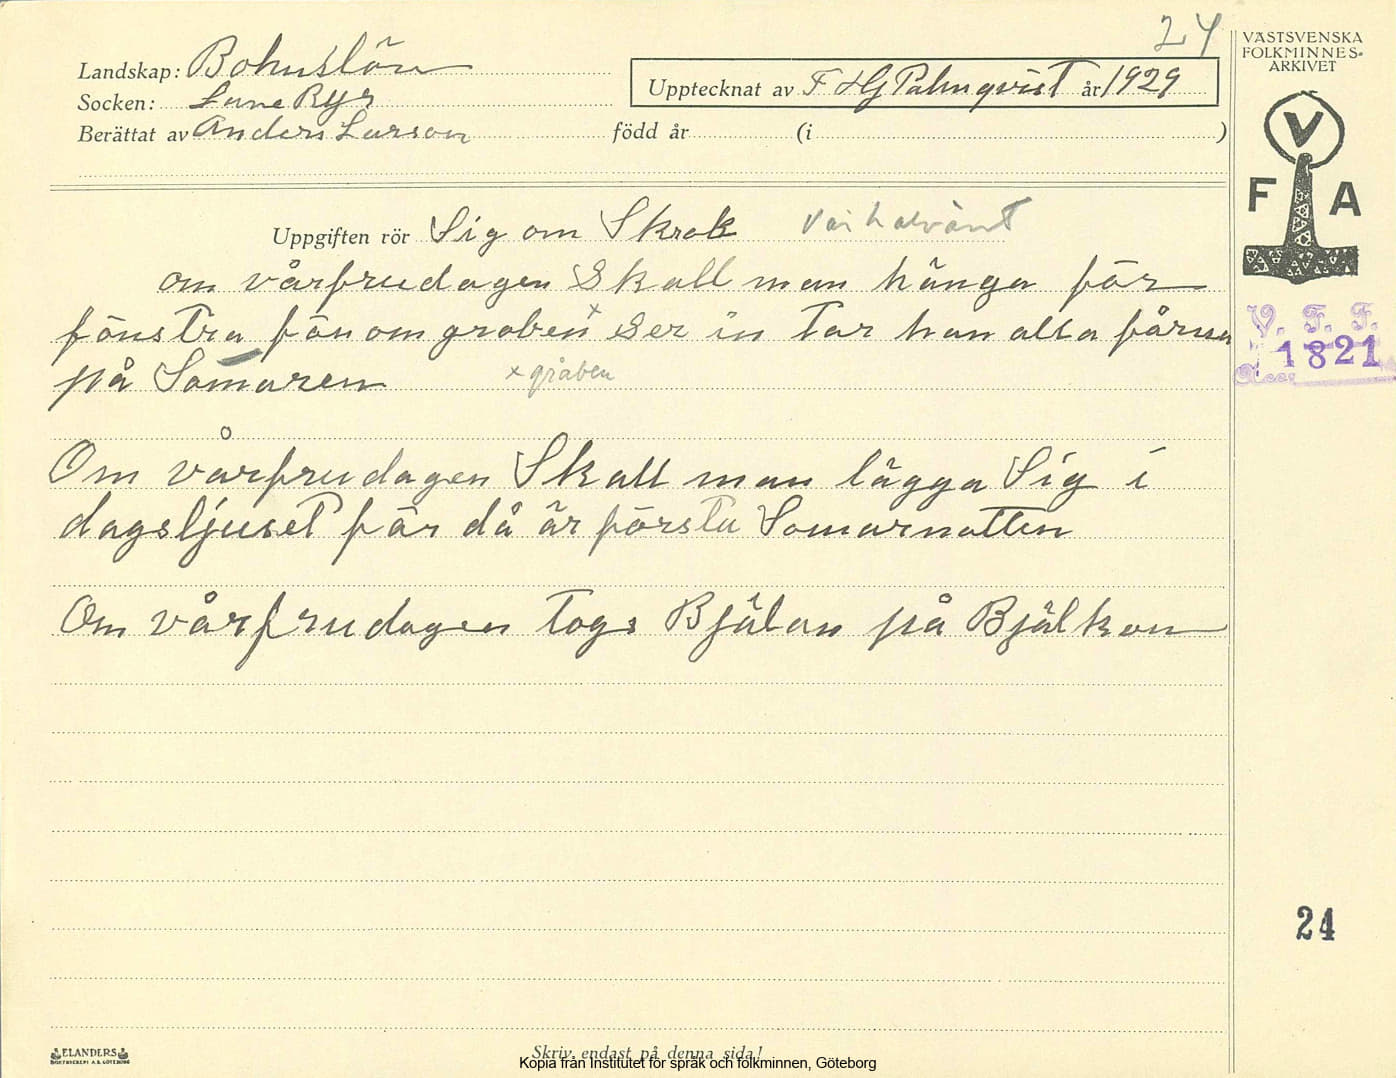 24
VÄSTSVENSKA
FOLKMINNES-
ARKIVET
Landskap: Bohuslän
Socken: Lane Ryr
Upptecknat av F HG Palmqvist år 1929
Berättat av Anders Larson född år (i )
V
F A
Uppgiften rör Sig om Skrok Vår
om vårfrudagen Skall man hänga för
fönstra fön om graben x Ser in tar han alla fårna
på Somaren x gråben
V. F. F.
1821
Om vårfrudagen Skall man lägga Sig i
dagsljuset får då är första Somarnatten
Om vårfrudagen togs Bjälan på Bjälkon
24
ELANDERS
BOKTRYCKERI A.B. GÖTEBORG
Skriv endast på denna sida!
Kopia från Institutet för språk och folkminnen, Göteborg